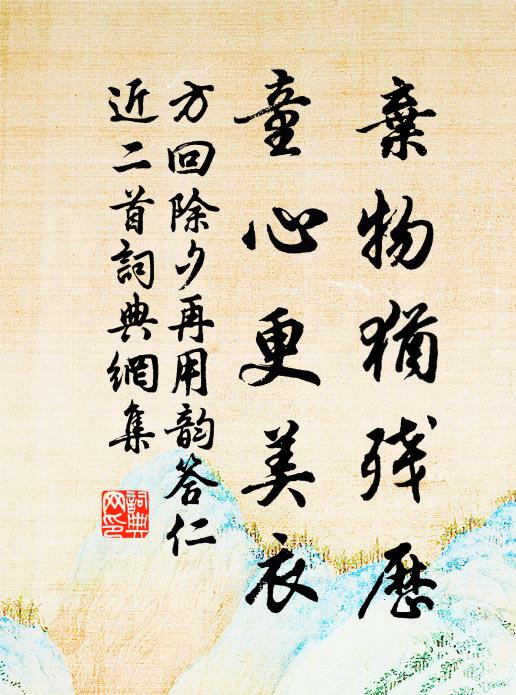 棄物猶殘歷
童心更美衣
方回除夕再用韵答仁
近二首詞典網集
詞典
网印